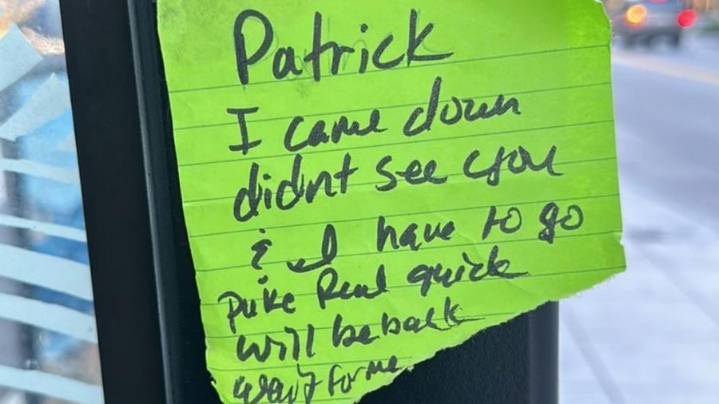 Patrick
I came down
didnt see you
& I have to go
puke Real quick
will be back
wait for me.